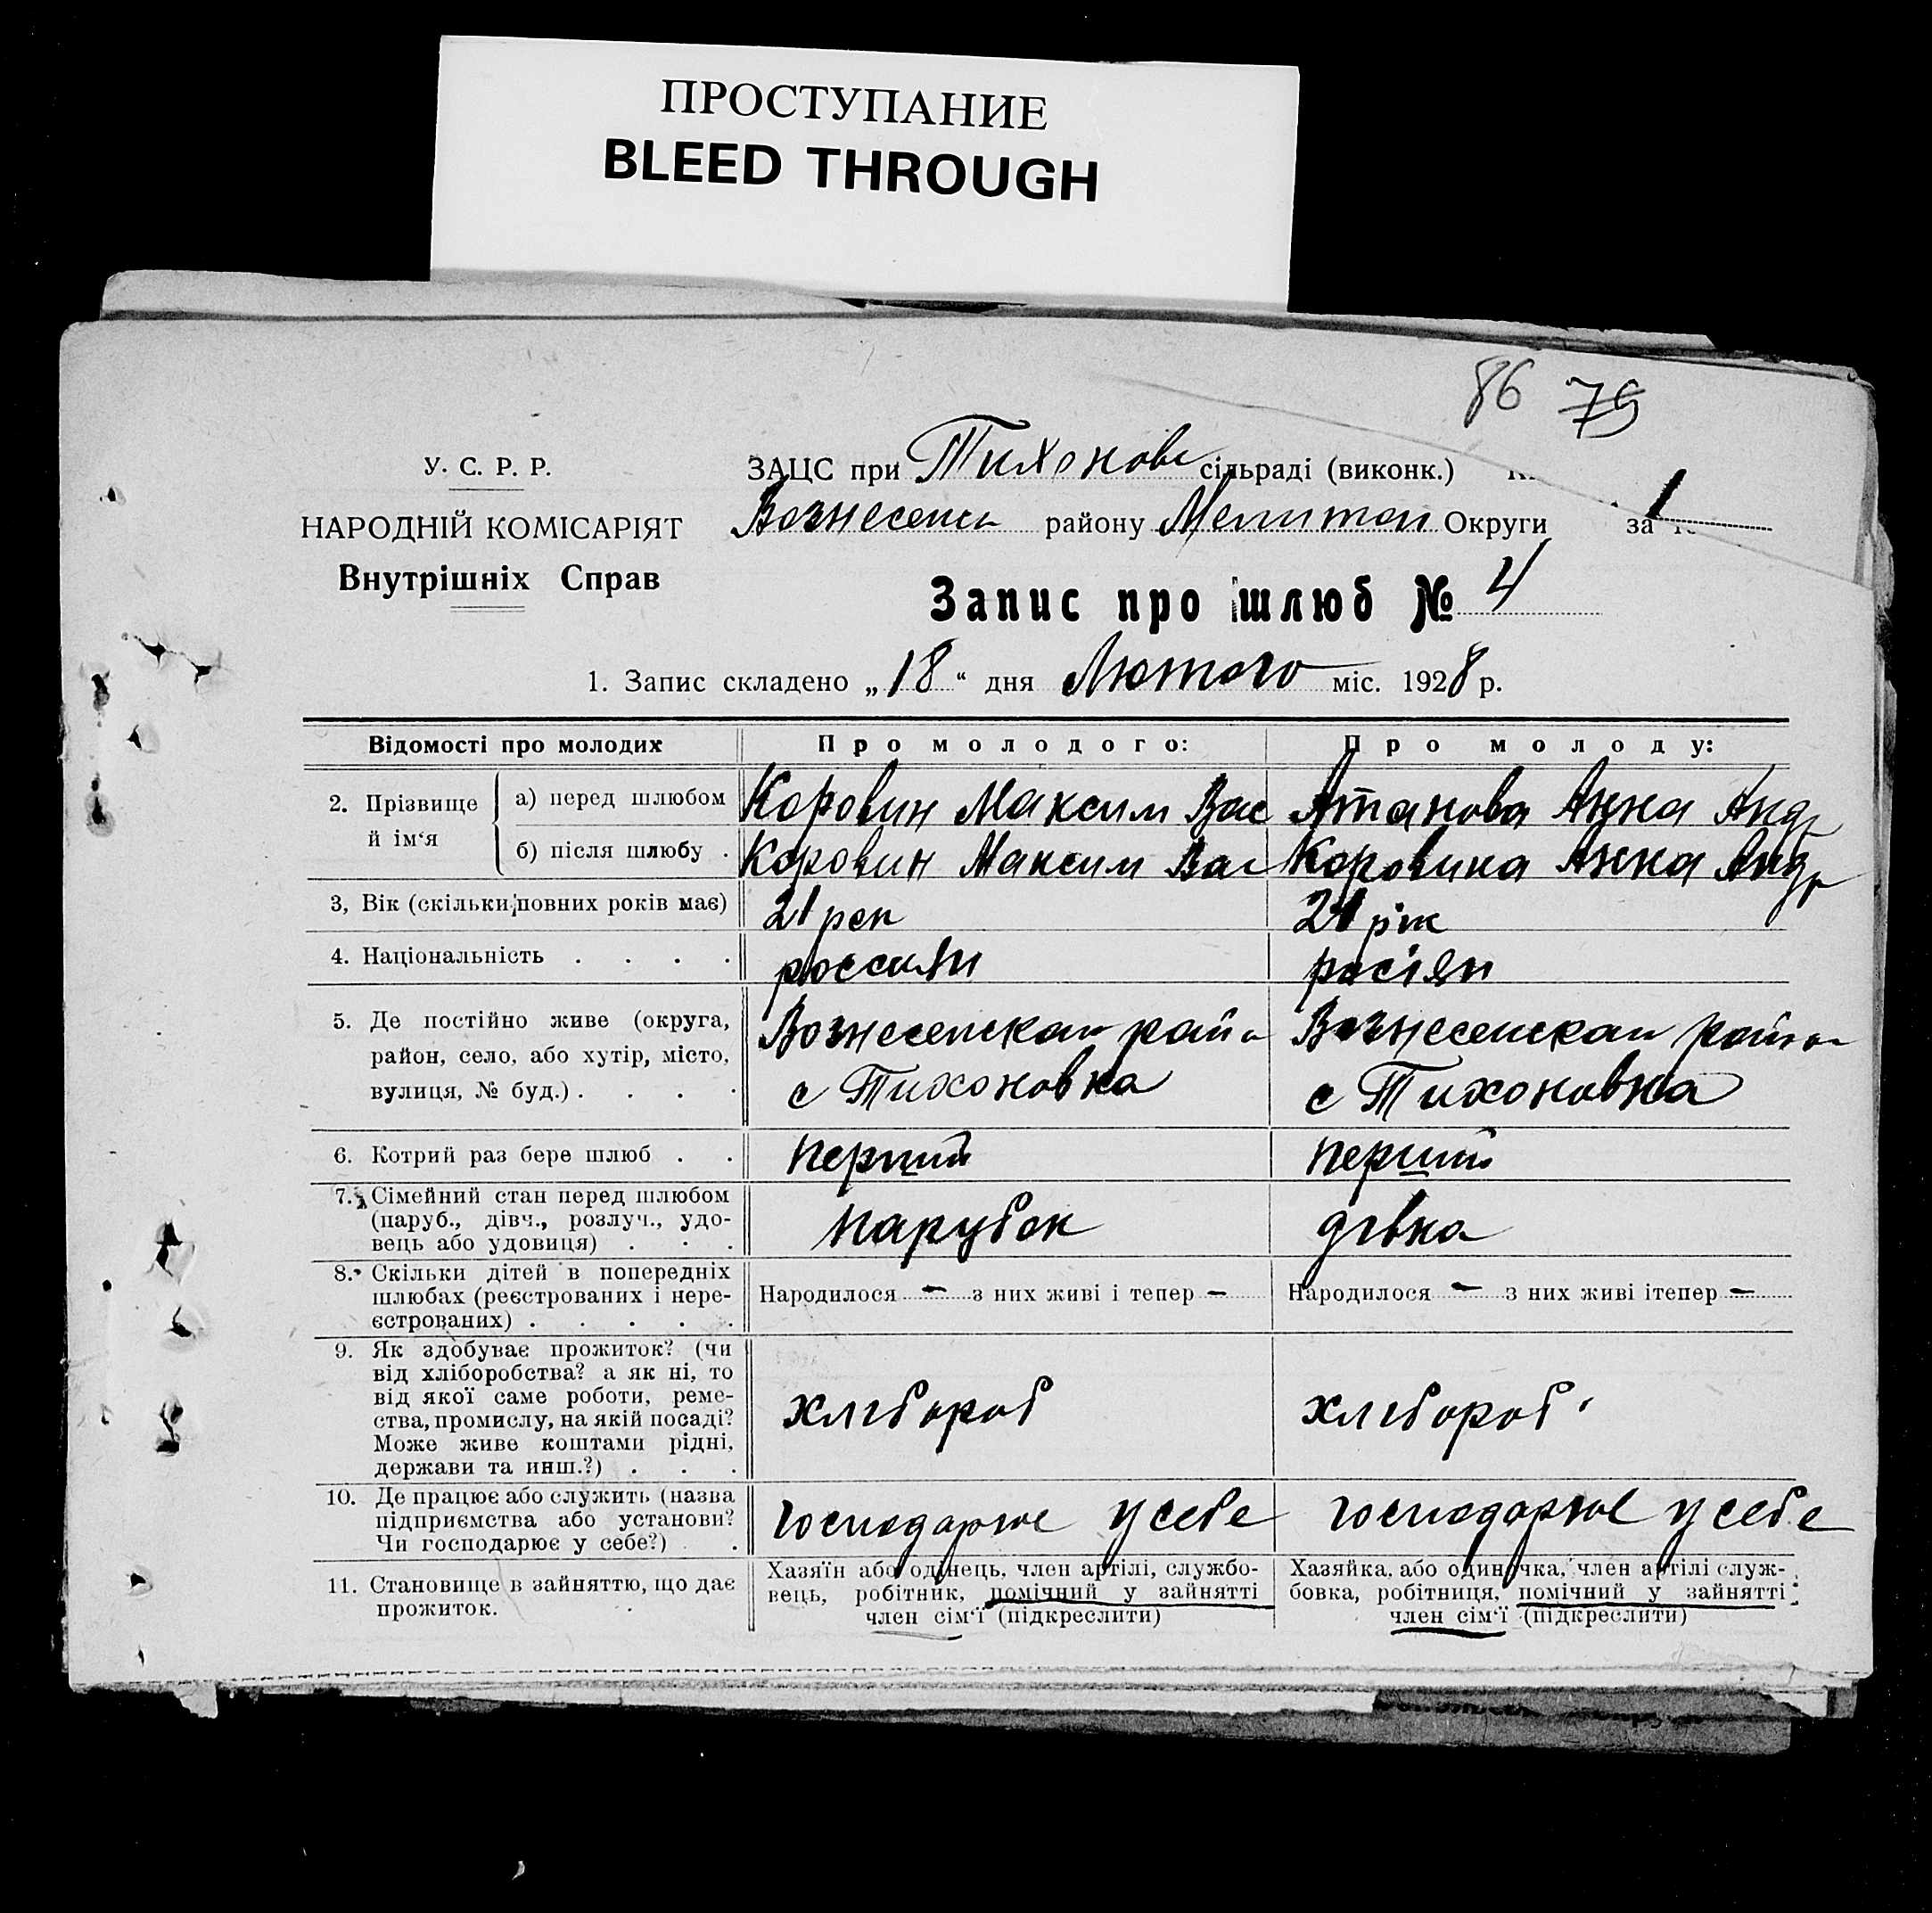 ПРОСТУПАНИЕ
BLEED THROUGH
86 79
У. С. Р. Р.
НАРОДНІЙ КОМІСАРІЯТ
Внутрішніх Справ
ЗАЦС при Тихонов сільраді (виконк.)
Вознесенск району Мелитоп Округи за 1
Запис про шлюб № 4
1. Запис складено „18“ дня Лютого міс. 1928 р.
Відомості про молодих Про молодого: Про молоду:
2. Прізвище й ім‘я
а) перед шлюбом Коровин Максим Вас Атанова Анна Андр
б) після шлюбу . Коровин Максим Вас Коровина Анна Андр
3, Вік (скільки повних років має) 21 рок 21 рік
4. Національність . . . . россиян росіян
5. Де постійно живе (округа, район, село, або хутір, місто, вулиця, № буд.) . . . .
Вознесенскаи района
с Тихоновка
Вознесенскаи района
с Тихоновка
6. Котрий раз бере шлюб . . перший перший
7. Сімейний стан перед шлюбом
(паруб., дівч., розлуч., удо-
вець або удовиця) . . .
парубок дівка
8. Скільки дітей в попередніх
шлюбах (реєстрованих і нере-
єстрованих) . . . . .
Народилося — з них живі і тепер — Народилося — з них живі ітепер —
9. Як здобуває прожиток? (чи
від хліборобства? а як ні, то
від якої саме роботи, реме-
ства, промислу, на якій посаді?
Може живе коштами рідні,
держави та инш.?) . . .
хлібороб хлібороб
10. Де працює або служить (назва
підприємства або установи?
Чи господарює у себе?) .
господарює у себе господарює у себе
11. Становище в зайняттю, що дає
прожиток.
Хазяїн або одінець, член артілі, службо-
вець, робітник, помічний у зайнятті
член сім‘ї (підкреслити)
Хазяйка, або одиночка, член артілі служ-
бовка, робітниця, помічний у зайнятті
член сім‘ї (підкреслити)